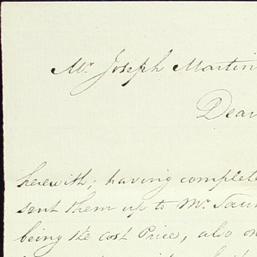 Mr. Joseph Martin
Dear
herewith; having complete
sent them up to Mr.
being the cost Price, also on